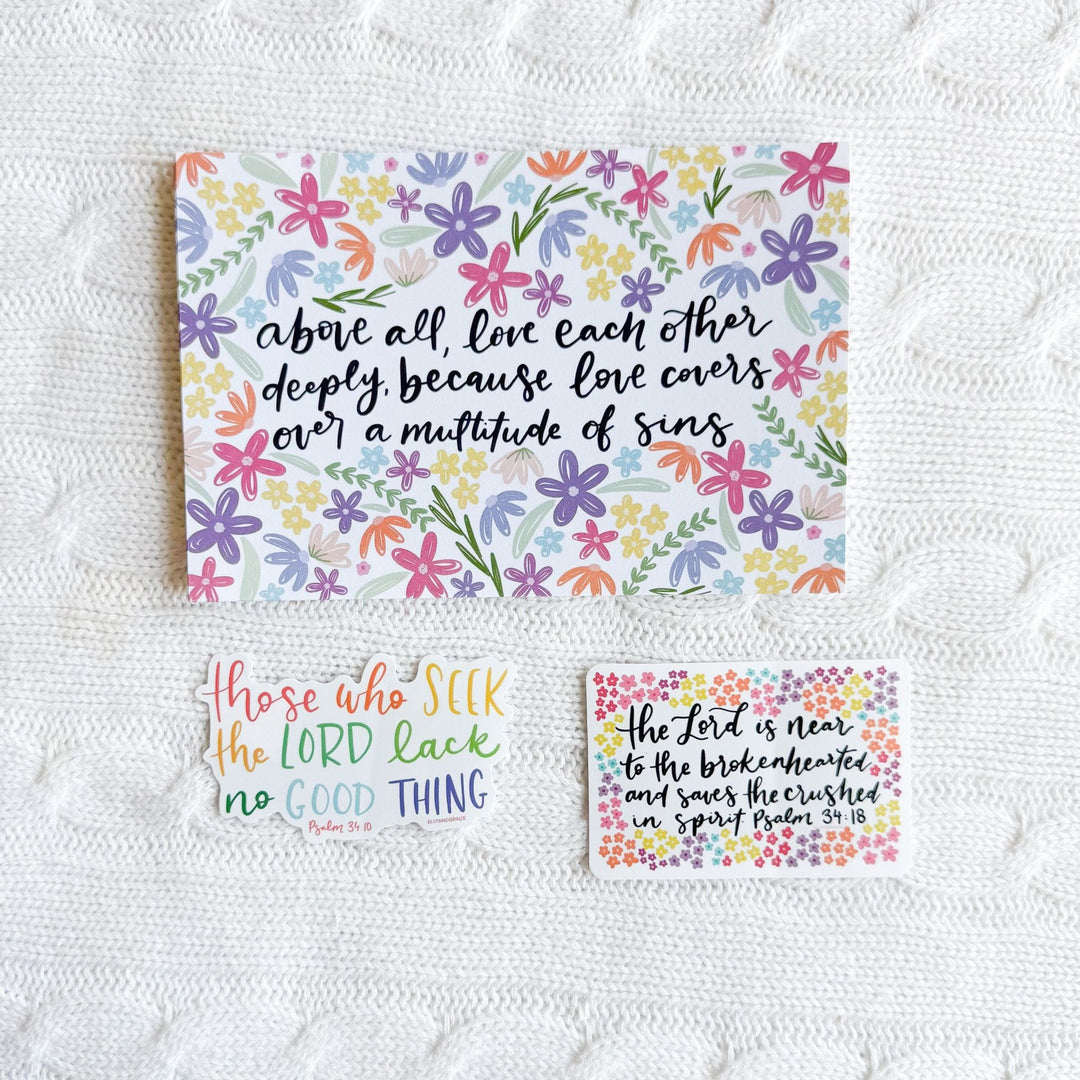 above all, love each other
deeply, because love covers
over a multitude of sins
those who SEEK
the LORD lack
no GOOD THING
Psalm 34:10
ELLYANDGRACE
the Lord is near
to the brokenhearted
and saves the crushed
in spirit Psalm 34:18